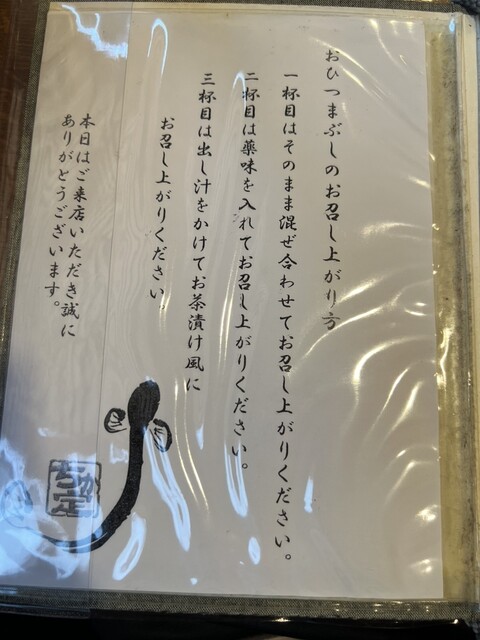 おひつまぶしのお召し上がり方
一杯目はそのまま混ぜ合わせてお召し上がりください。
二杯目は薬味を入れてお召し上がりください。
三杯目は出し汁をかけてお茶漬け風に
お召し上がりください。
本日はご来店いただき誠に
ありがとうございます。